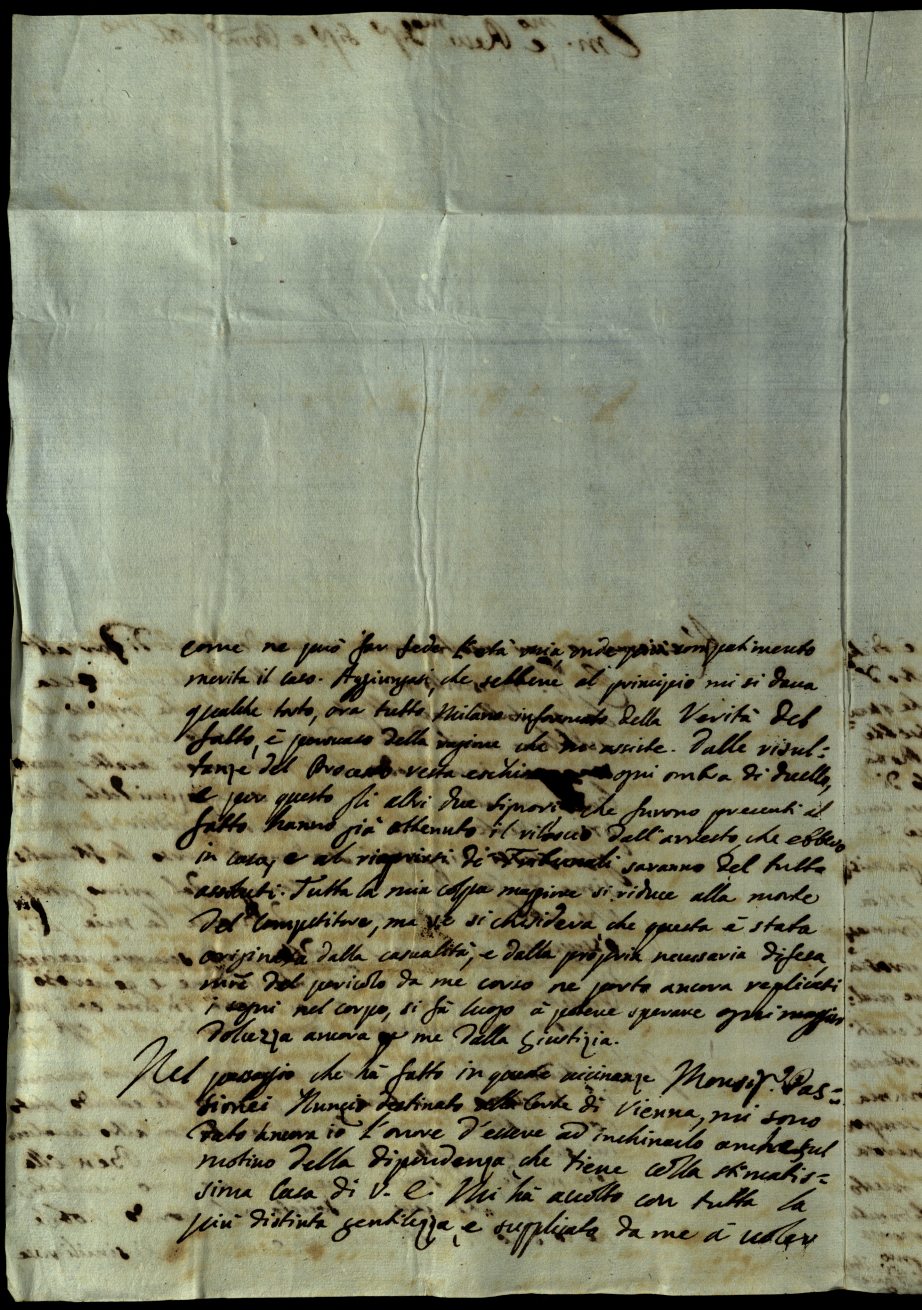 come ne può far fede l'età mia, onde più compatimento
merita il caso. Aggiungasi, che sebbene al principio mi si dava
qualche torto, ora tutto Milano informato della Verità del
fatto, è persuaso della ragione che m'assiste. Dalle risul=
tanze del Processo resta ogni ombra di duello,
e per questo gli altri due Signori che furono presenti al
fatto hanno già ottenuto il rilascio dall'arresto, che ebbero
in casa, e al riaprirsi di Tribunali saranno del tutto
assoluti. Tutta la mia colpa maggiore si riduce alla morte
del Competitore, ma se si considera che questa è stata
originata dalla casualità, e dalla propria necessaria difesa,
del pericolo da me corso ne porto ancora replicati
i segni nel corpo, si fà luogo à potere sperare ogni maggior
dolcezza ancora per me dalla Giustizia.
Nel passaggio che hà fatto in queste vicinanze Monsig.r Pas=
sionei Nuncio destinato alla Corte di Vienna, mi sono
dato ancora io l'onore d'essere ad inchinarlo anche sul
motivo della dipendenza che tiene colla stimatis=
sima Casa di V. E. Mi hà accolto con tutta la
più distinta gentilezza, e supplicato da me à voler